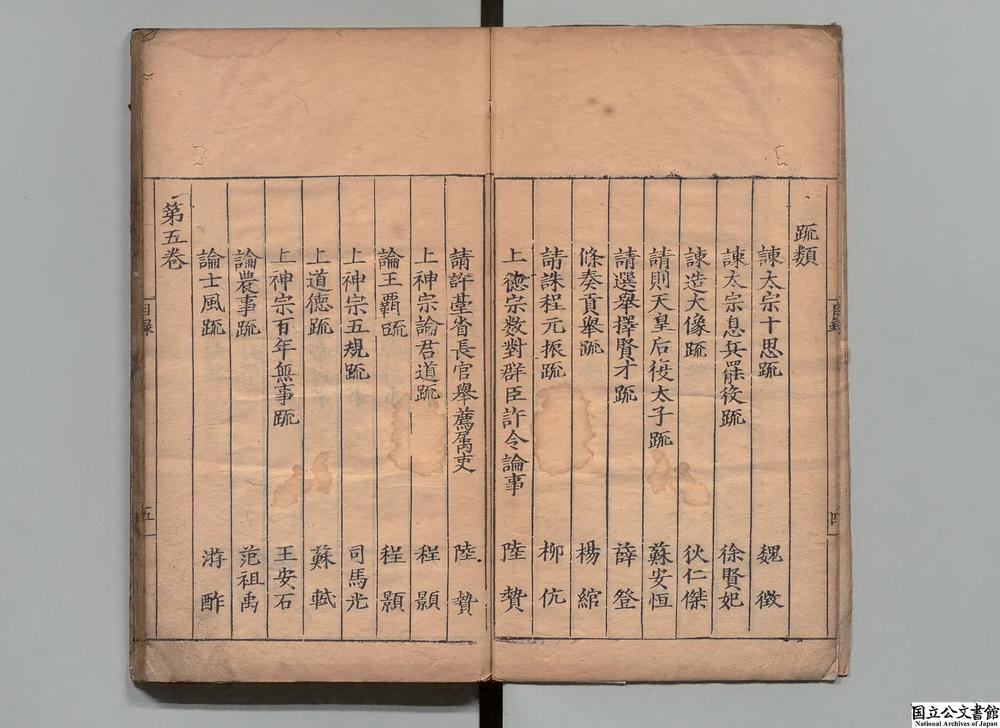 疏類
諫太宗十思疏 魏徵
諫太宗息兵罷役疏 徐賢妃
諫造大像疏 狄仁傑
請則天皇后復太子疏 蘇安恒
請選舉擇賢才疏 薛登
條奏貢舉疏 楊綰
請誅程元振疏 柳伉
上德宗數對群臣許令論事 陸贄
請許臺省長官舉薦属吏 陸贄
上神宗論君道疏 程顥
論王霸疏 程顥
上神宗五規疏 司馬光
上道德疏 蘇軾
上神宗百年無事疏 王安石
論農事疏 范祖禹
論士風疏 游酢
第五卷
目錄
四
目錄
五
国立公文書館
National Archives of Japan